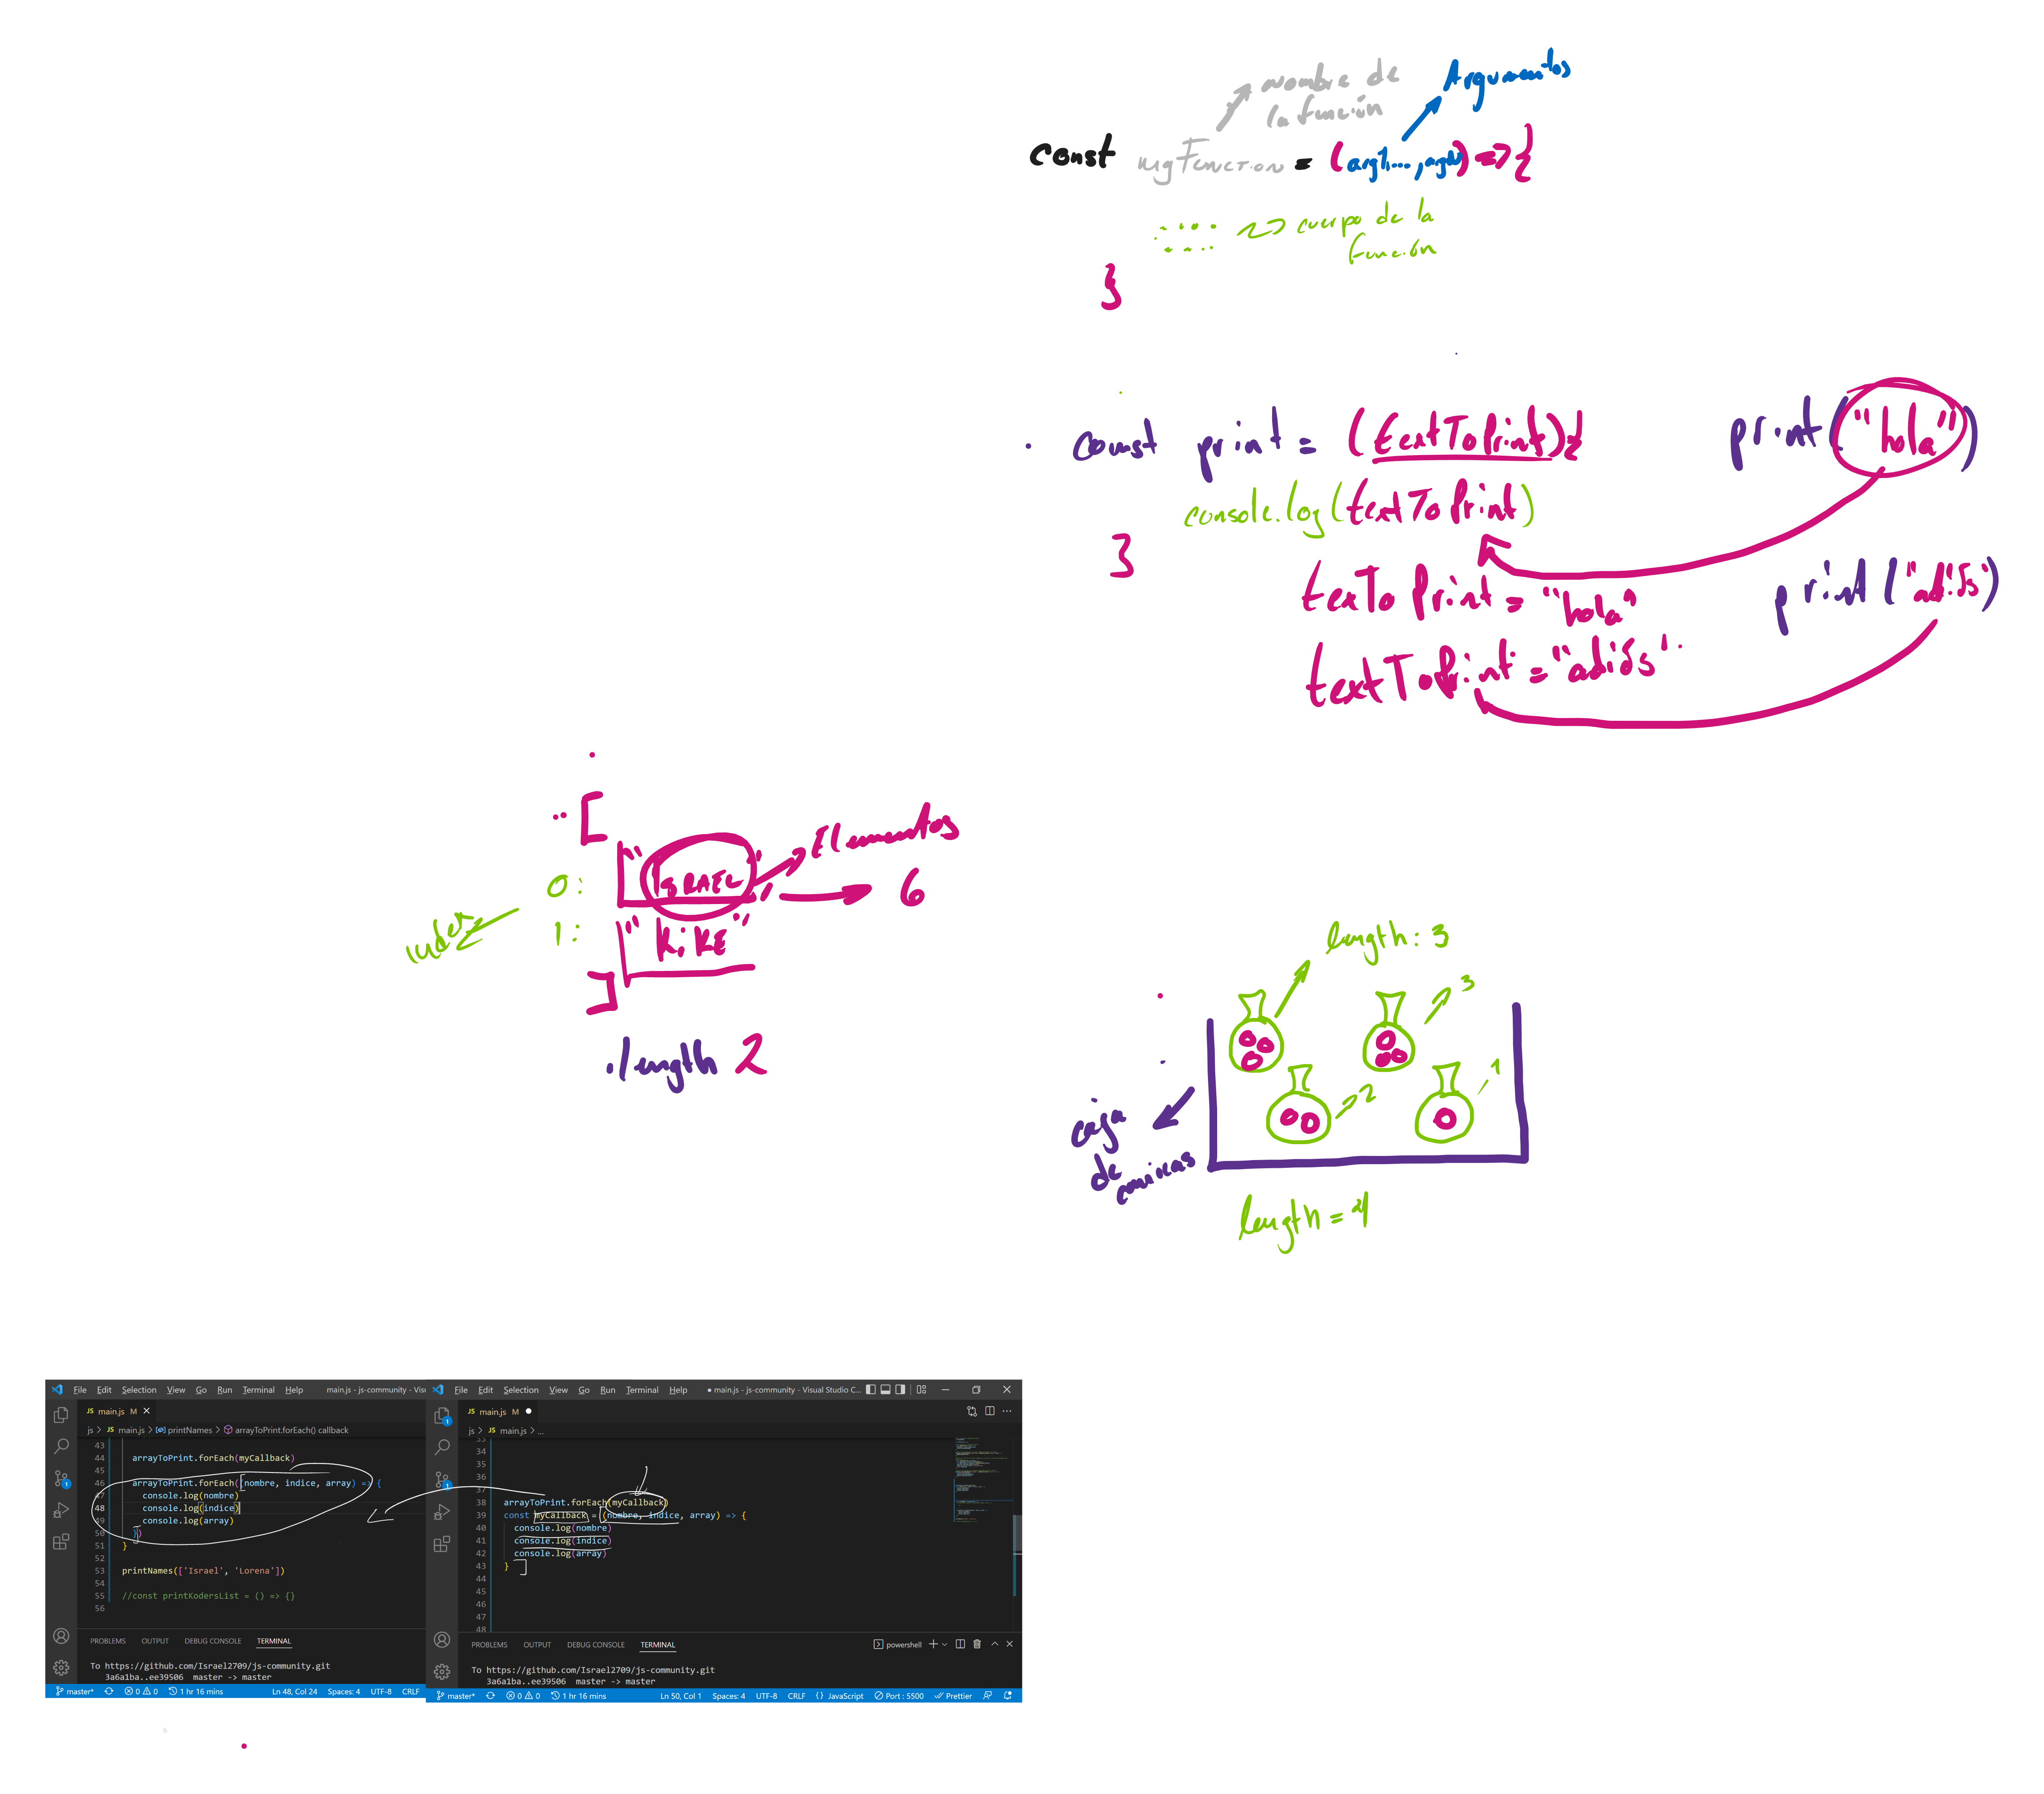 nombre de
la función
Argumentos
const myFunction = (arg1..., argN) => {
cuerpo de la
función
}
const print = (textToPrint){
console.log(textToPrint)
}
print("hola")
texToPrint = "hola"
print("adiós")
textToPrint = "adiós"
[
0: "Israel",
Elementos
6
index
1: "KiKE"
]
.length 2
length: 3
3
2
1
caja
de canicas
length = 4
File Edit Selection View Go Run Terminal Help main.js - js-community - Vis
JS main.js M
js > JS main.js > printNames > arrayToPrint.forEach() callback
43
44 arrayToPrint.forEach(myCallback)
45
46 arrayToPrint.forEach((nombre, indice, array) => {
47 console.log(nombre)
48 console.log(indice)
49 console.log(array)
50 })
51 }
52
53 printNames(['Israel', 'Lorena'])
54
55 //const printKodersList = () => {}
56
PROBLEMS OUTPUT DEBUG CONSOLE TERMINAL
To https://github.com/Israel2709/js-community.git
3a6a1ba..ee39506 master -> master
master* 0 0 1 hr 16 mins Ln 48, Col 24 Spaces: 4 UTF-8 CRLF
File Edit Selection View Go Run Terminal Help ● main.js - js-community - Visual Studio C...
JS main.js M ●
js > JS main.js > ...
33
34
35
36
37
38 arrayToPrint.forEach(myCallback)
39 const myCallback = (nombre, indice, array) => {
40 console.log(nombre)
41 console.log(indice)
42 console.log(array)
43 }
44
45
46
47
48
PROBLEMS OUTPUT DEBUG CONSOLE TERMINAL powershell
To https://github.com/Israel2709/js-community.git
3a6a1ba..ee39506 master -> master
master* 0 0 1 hr 16 mins Ln 50, Col 1 Spaces: 4 UTF-8 CRLF {} JavaScript Port : 5500 Prettier